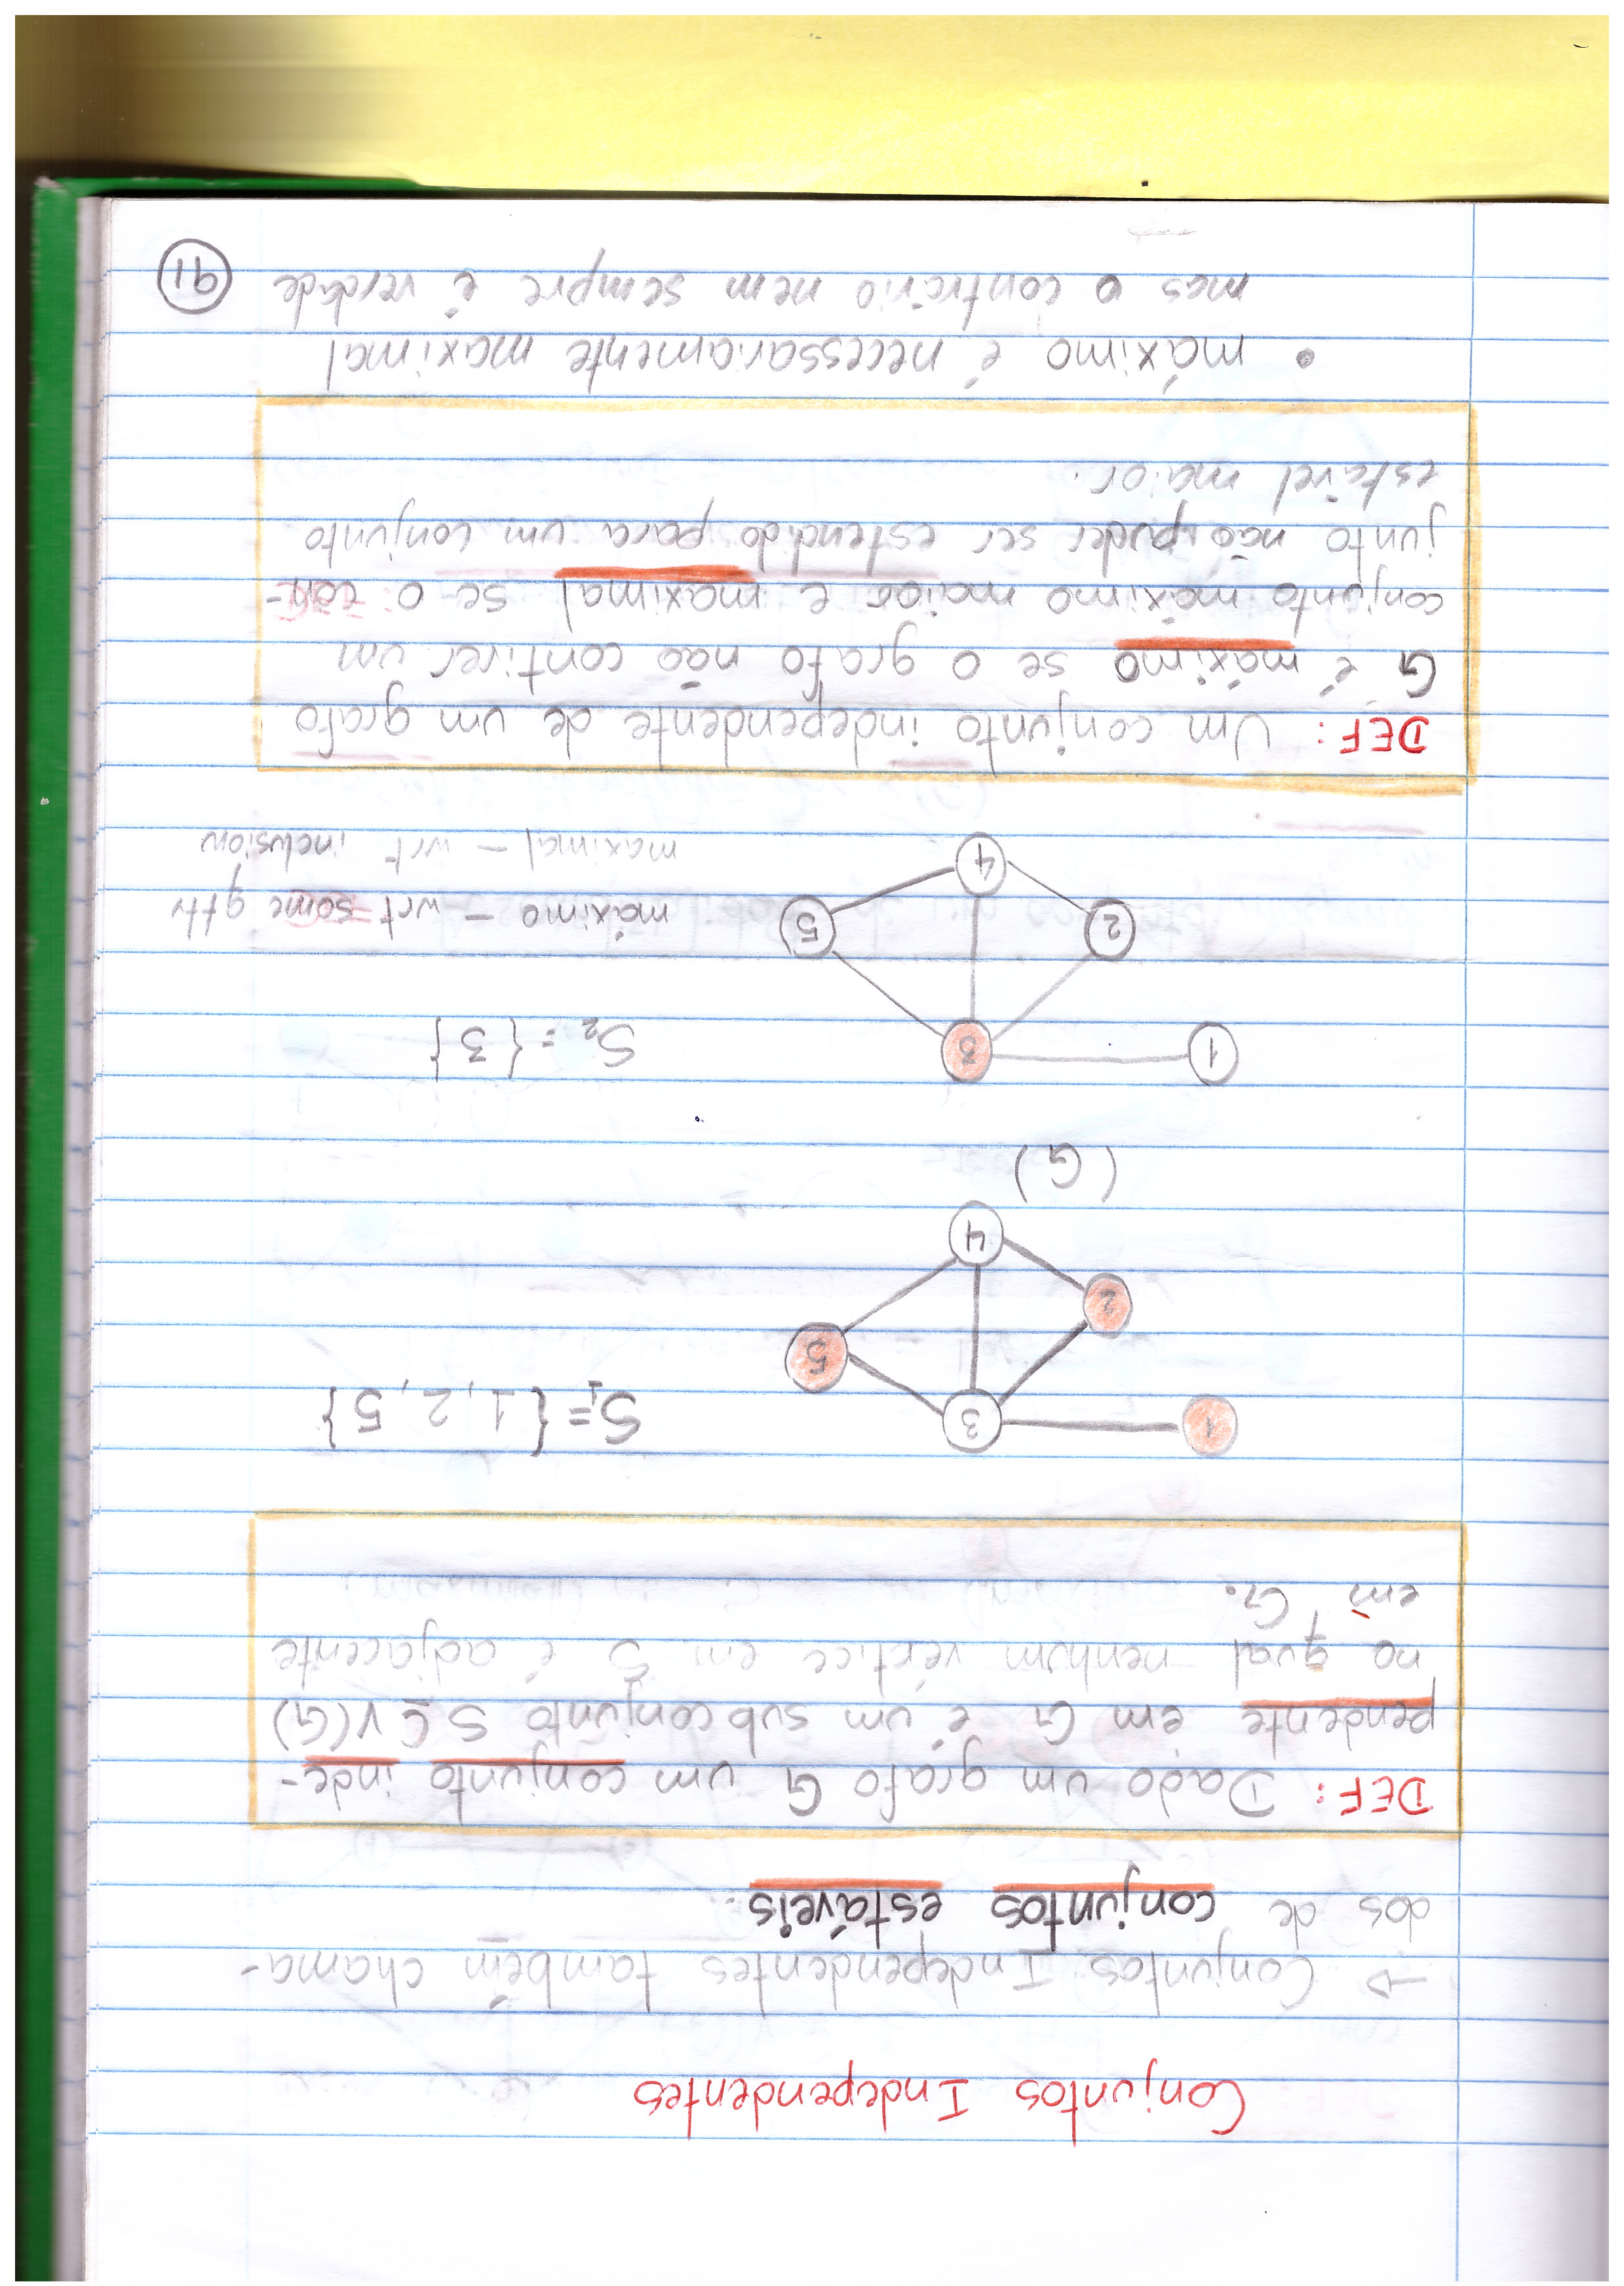 Conjuntos Independentes
→ Conjuntos Independentes também chama-
dos de conjuntos estáveis.
DEF: Dado um grafo G um conjunto inde-
pendente em G é um subconjunto S ⊆ V(G)
no qual nenhum vértice em S é adjacente
em G.
1 3 S₁={1, 2, 5}
5
2
4
(G)
1 3 S₂ = {3}
2 5 máximo – wrt some qttv
4 maximal – wrt inclusion
DEF: Um conjunto independente de um grafo
G é máximo se o grafo não contiver um
conjunto máximo maior e maximal se o con-
junto não puder ser estendido para um conjunto
estável maior.
• máximo é necessariamente maximal
mas o contrário nem sempre é verdade
91